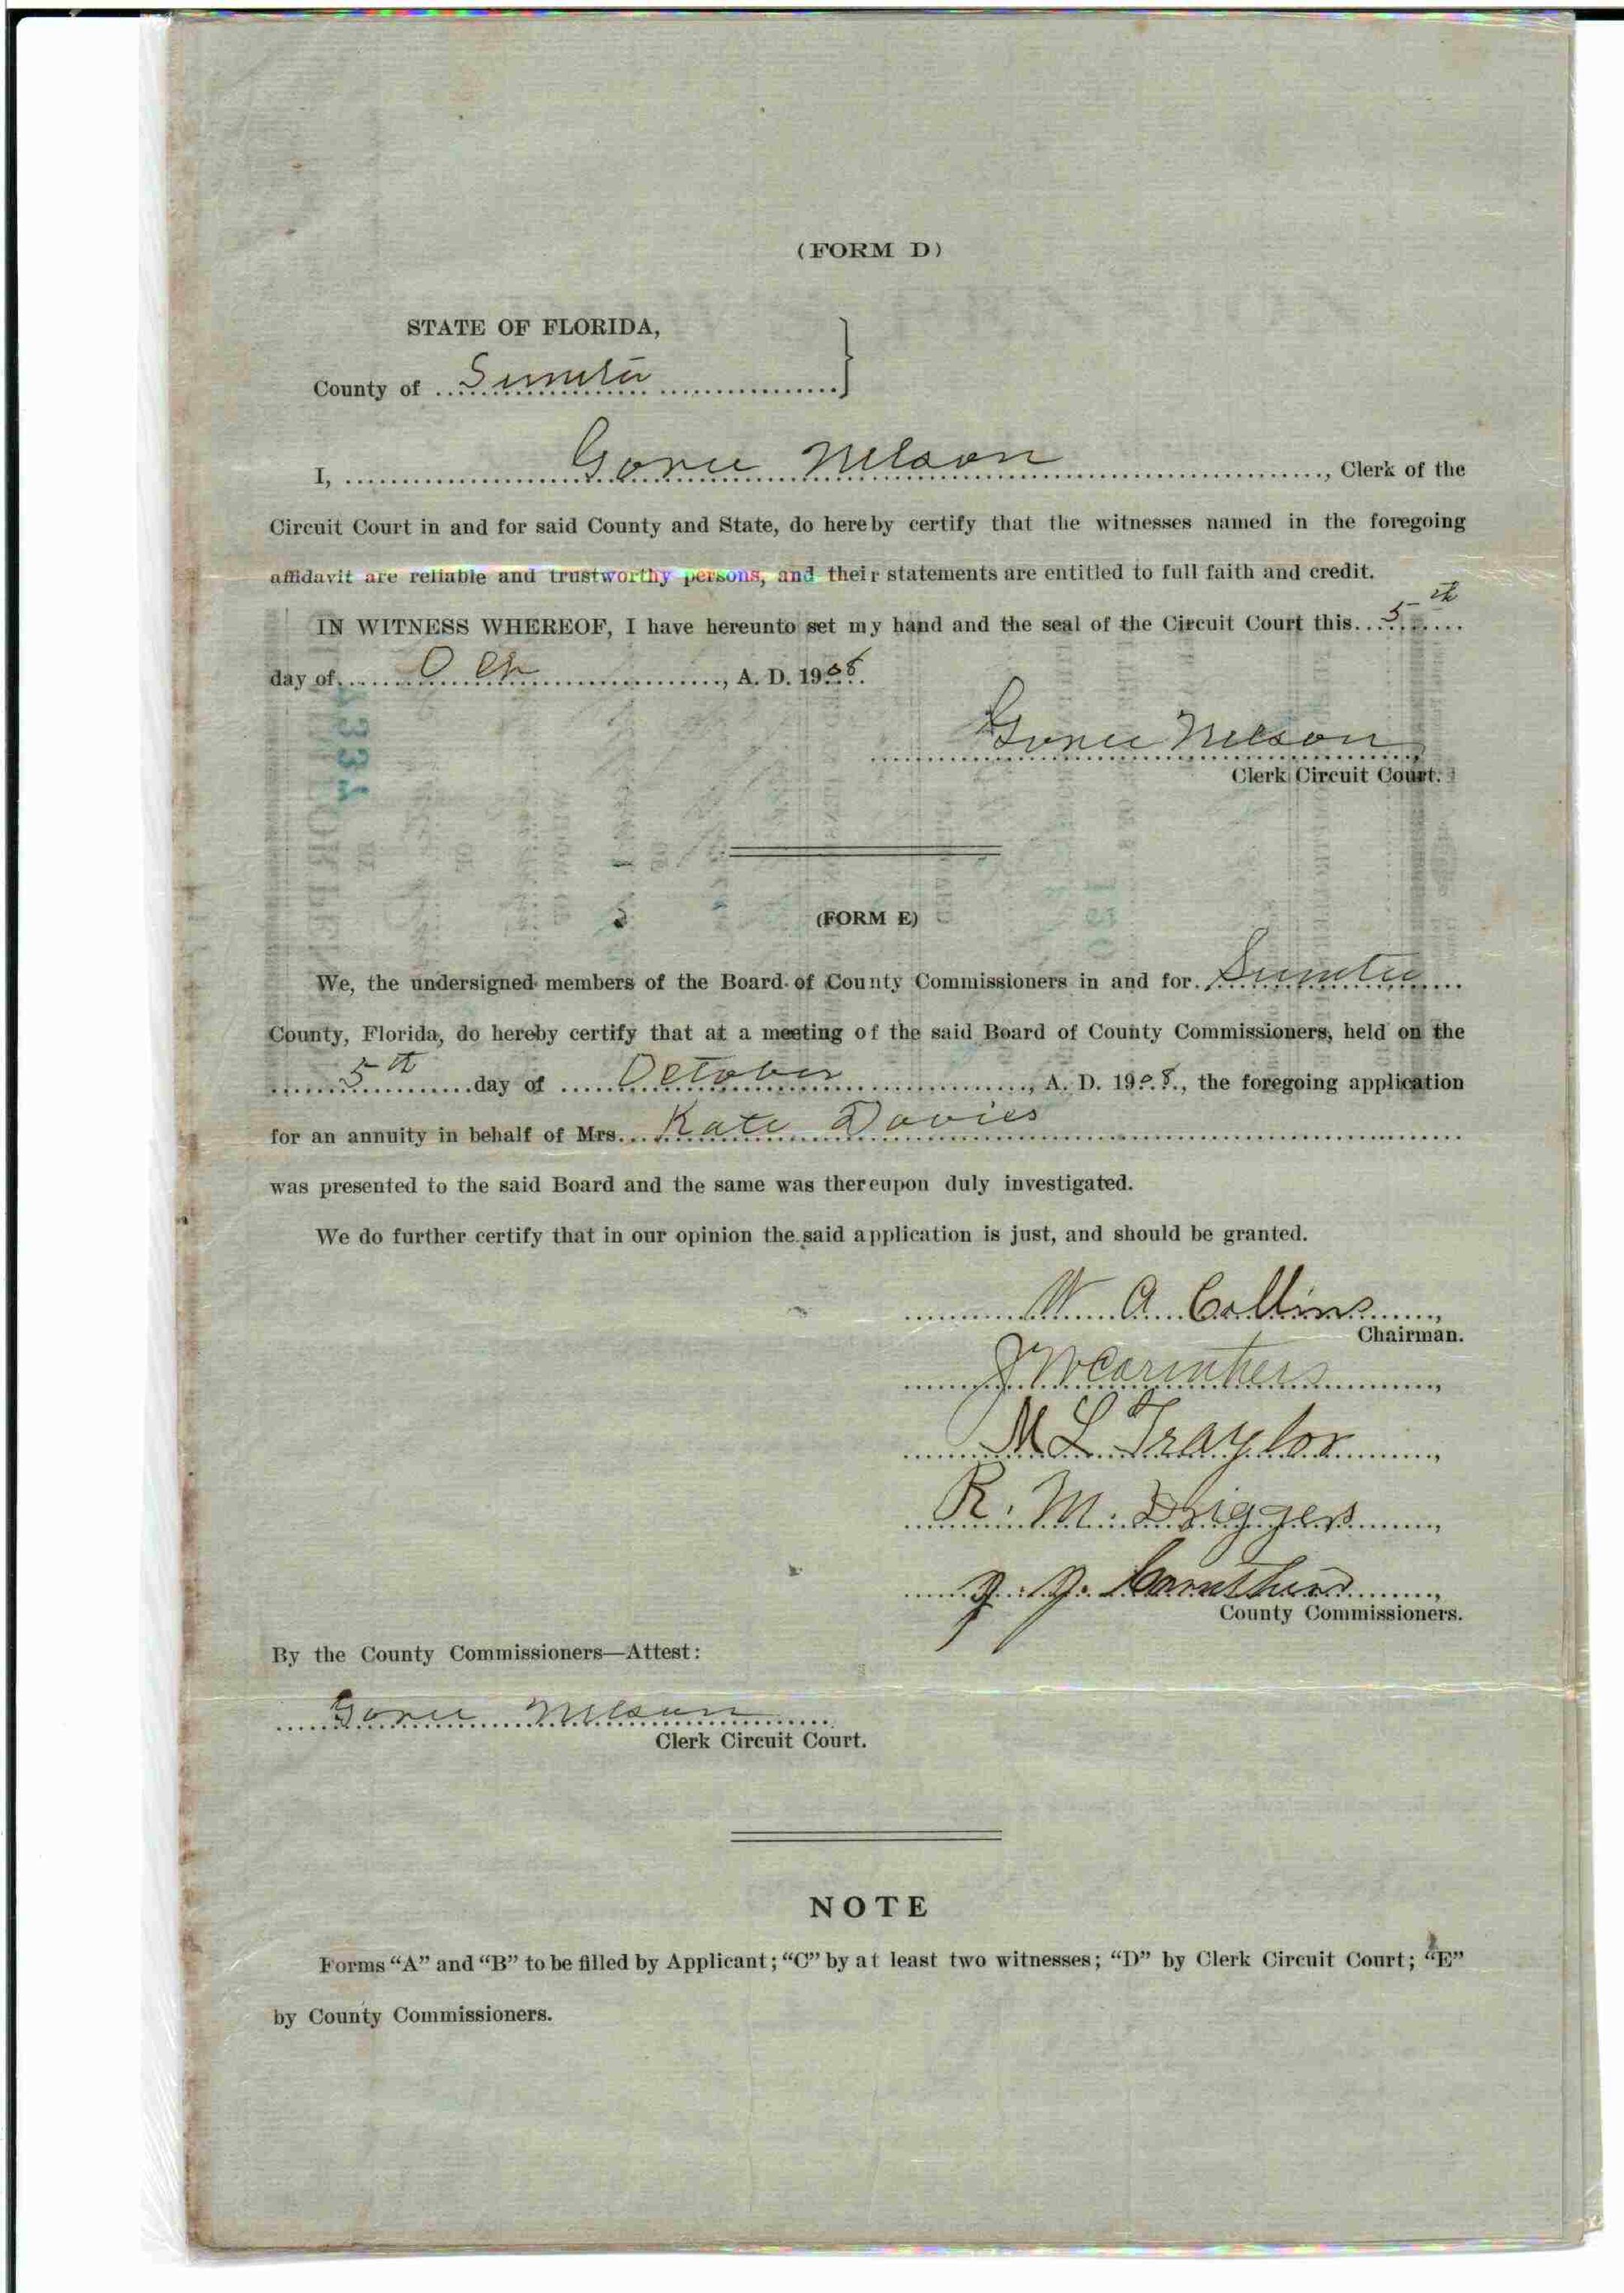 (FORM D)
STATE OF FLORIDA,
County of Sumter
I, Gorrie Nelson, Clerk of the
Circuit Court in and for said County and State, do hereby certify that the witnesses named in the foregoing
affidavit are reliable and trustworthy persons, and their statements are entitled to full faith and credit.
IN WITNESS WHEREOF, I have hereunto set my hand and the seal of the Circuit Court this 5th
day of Oct, A. D. 1908.
Nelson
Clerk Circuit Court.
(FORM E)
We, the undersigned members of the Board of County Commissioners in and for Sumter
County, Florida, do hereby certify that at a meeting of the said Board of County Commissioners, held on the
5th day of October, A. D. 1908., the foregoing application
for an annuity in behalf of Mrs. Kate Davies
was presented to the said Board and the same was thereupon duly investigated.
We do further certify that in our opinion the said application is just, and should be granted.
W A Collins,
Chairman.
J W Caruthers,
M L Traylor,
R. M. Driggers,
Caruthers,
County Commissioners.
By the County Commissioners—Attest:
Nelson
Clerk Circuit Court.
NOTE
Forms "A" and "B" to be filled by Applicant; "C" by at least two witnesses; "D" by Clerk Circuit Court; "E"
by County Commissioners.